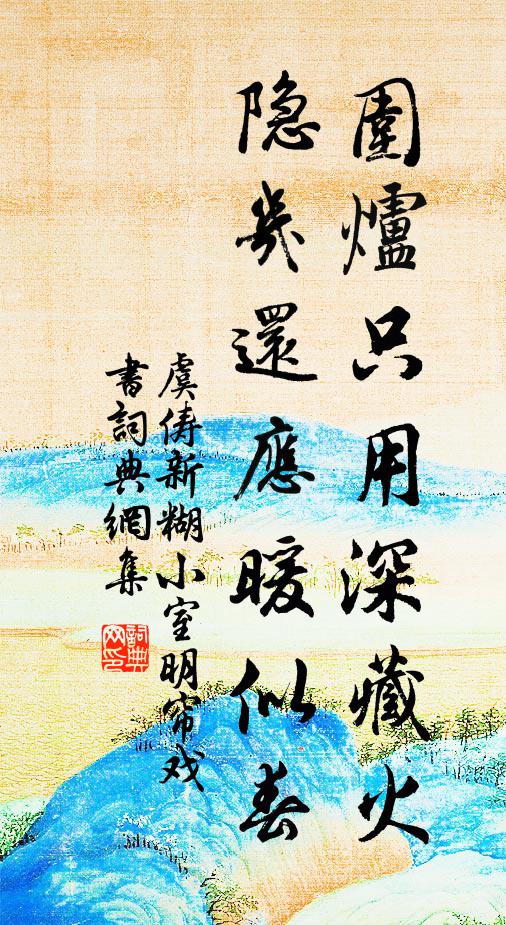 圍爐只用深藏火
隐几還應暖似春
虞俦新糊小室明帘戏
書詞典網集
詞典網印